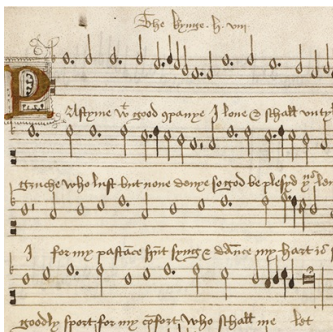 The kynge . H . viii
PAstyme wt good co̅panye I love & schall untyll
gruche who lust but none denye so god be plesyd
I for my pasta̅ce hu̅t syng & da̅ce my hart is
goodly sport for my co̅fort who schall me let